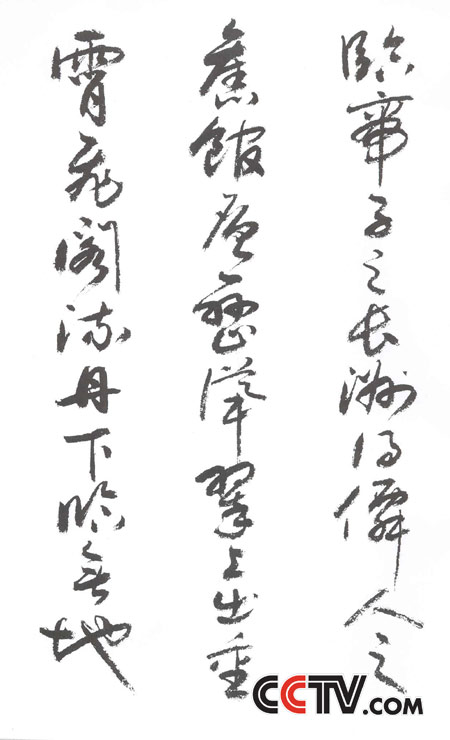 臨帝子之長洲得僊人之
舊館層巒聳翠上出重
霄飛閣流丹下臨無地
CCTV.COM